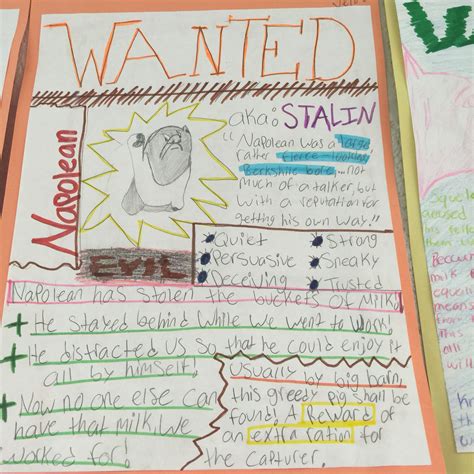 WANTED
Napolean
aka: STALIN
"Napolean was a large
rather fierce-looking
Berkshire bore... not
much of a talker, but
with a reputation for
getting his own way."
EVIL
Quiet
Persuasive
Deceiving
Strong
Sneaky
Trusted
Napolean has stolen the buckets of milk!
+ He stayed behind while we went to work!
+ He distracted us so that he could enjoy it
all by himself!
+ Now no one else can
have that milk we
worked for!
Usually by big barn,
this greedy pig shall be
found! A Reward of
an extra ration for
the capturer.